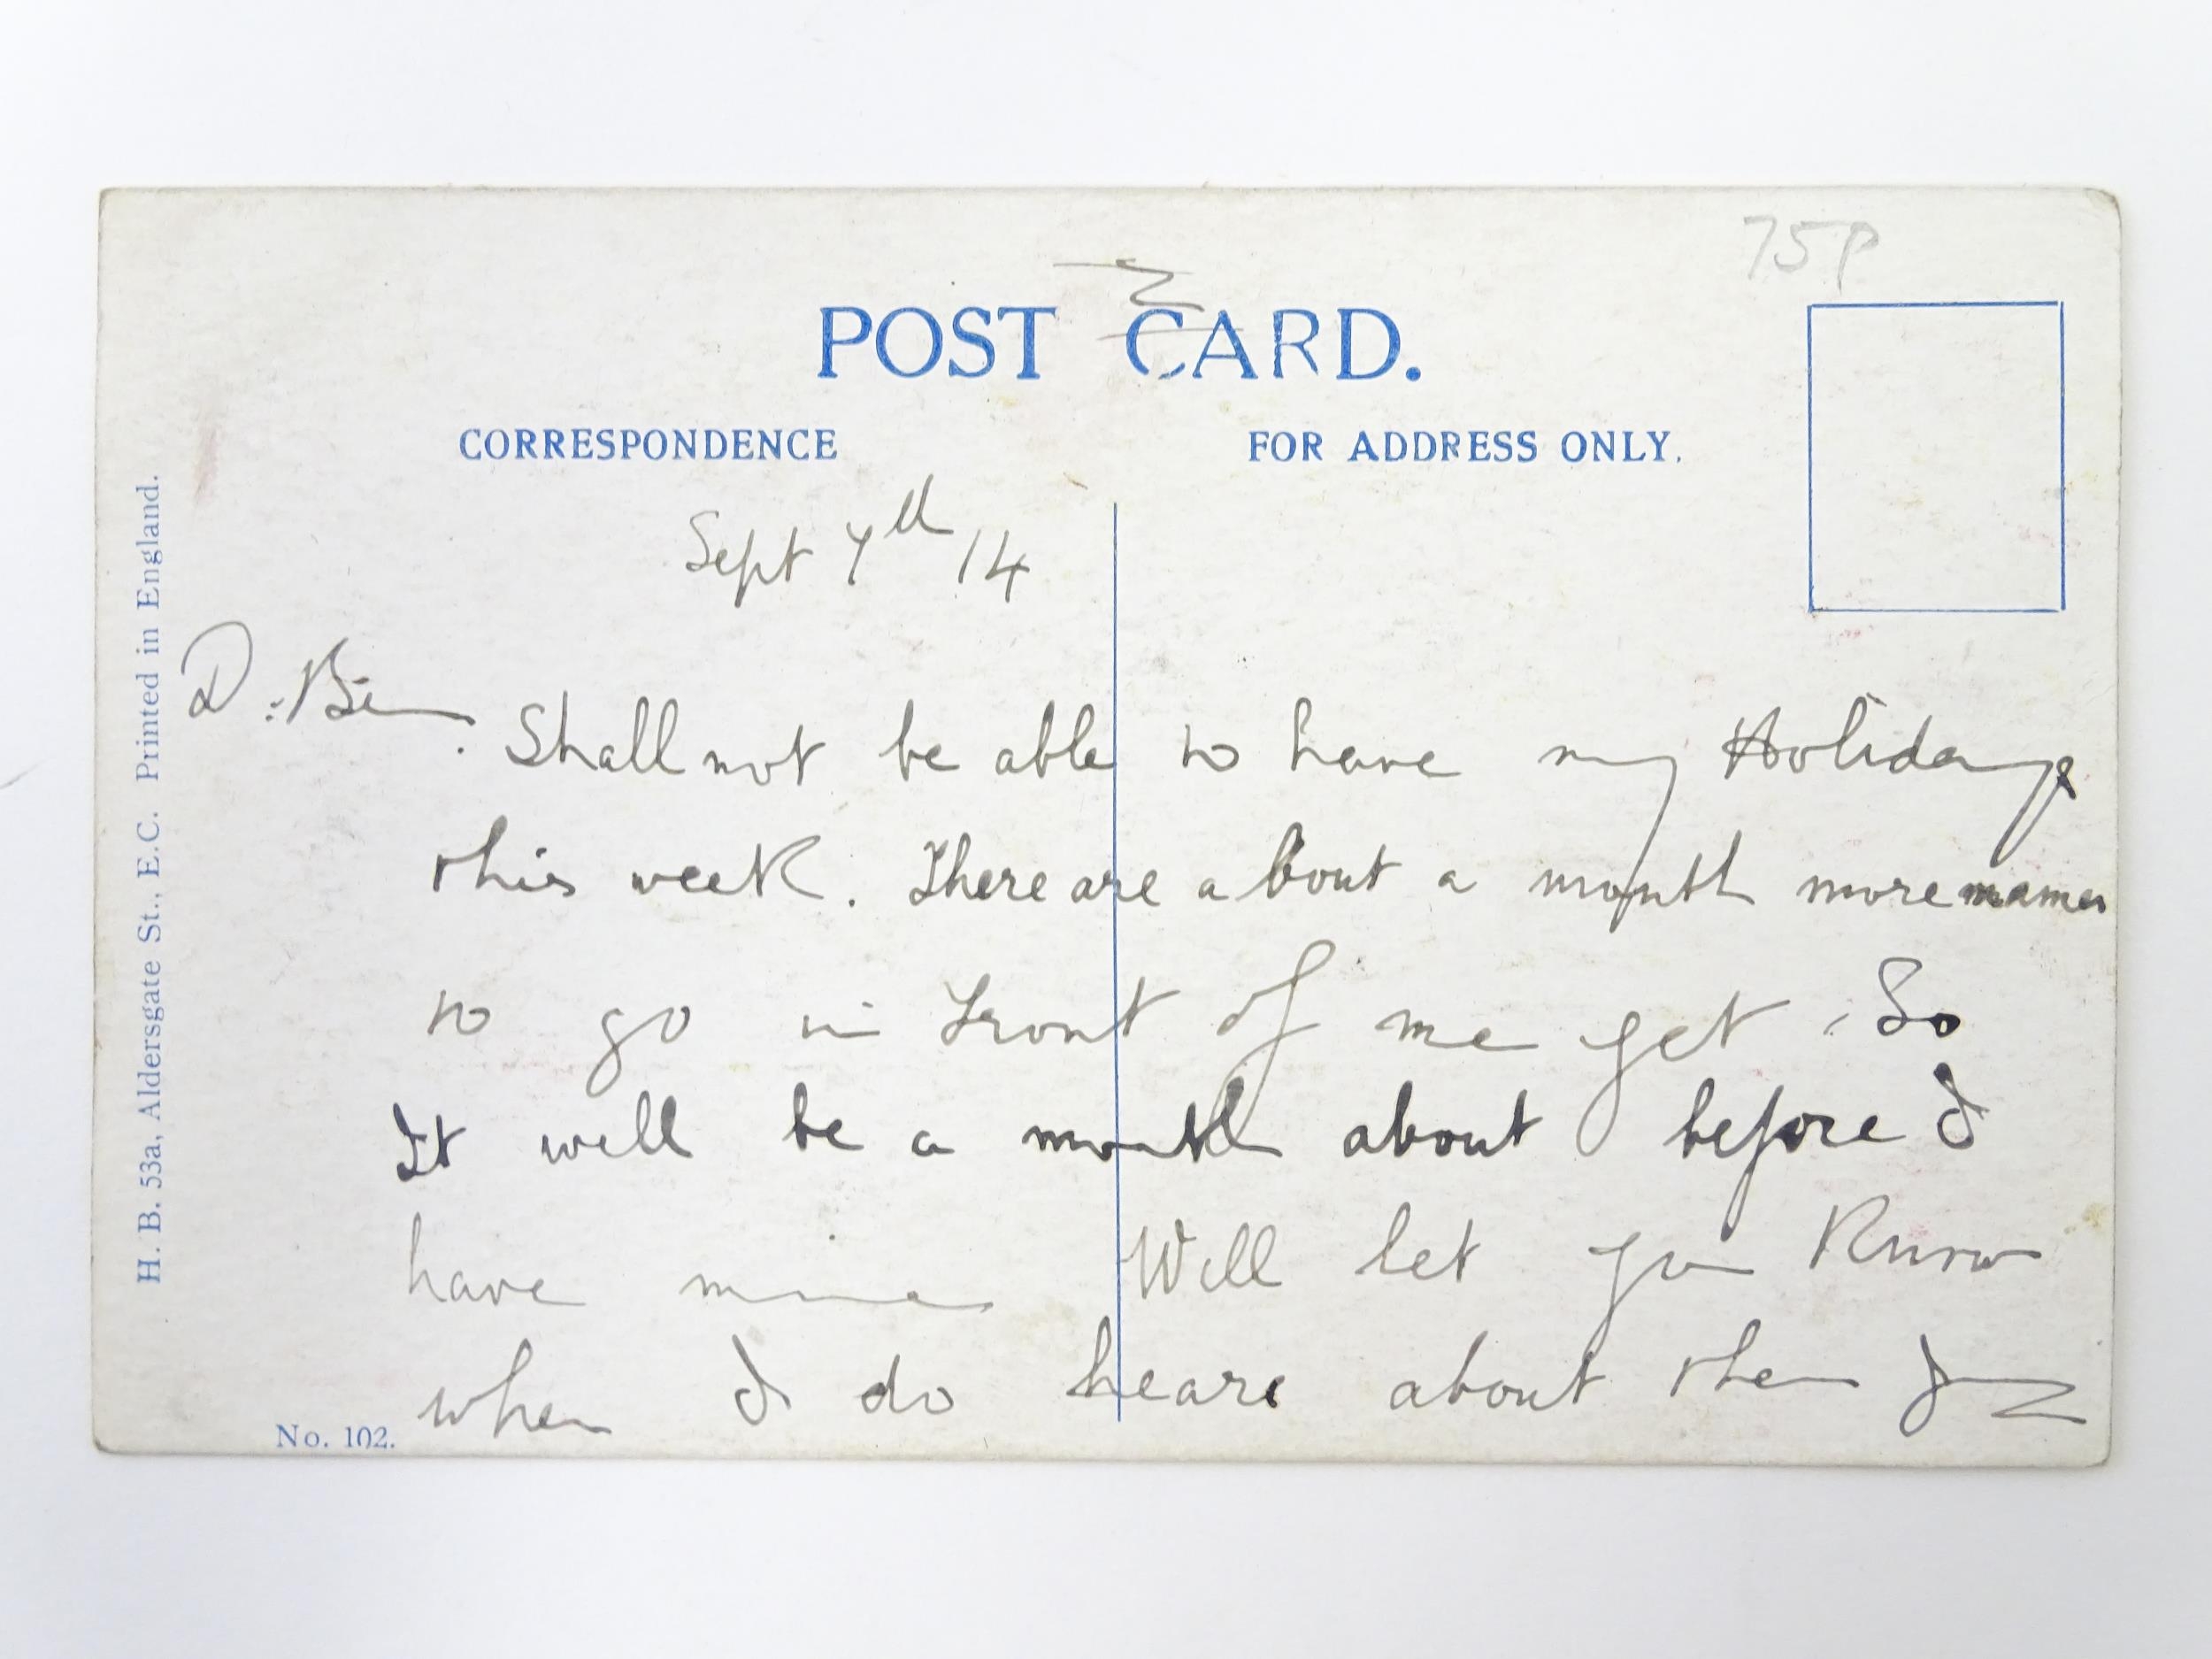 75P
POST CARD.
CORRESPONDENCE
FOR ADDRESS ONLY.
H. B. 53a, Aldersgate St., E.C. Printed in England.
Sept 7th 14
D. Ben.
Shall not be able to have my Holidays
this week. There are about a month more names
to go in front of me yet. So
It will be a month about before I
have mine Will let you Know
when I do heare about them
No. 102.